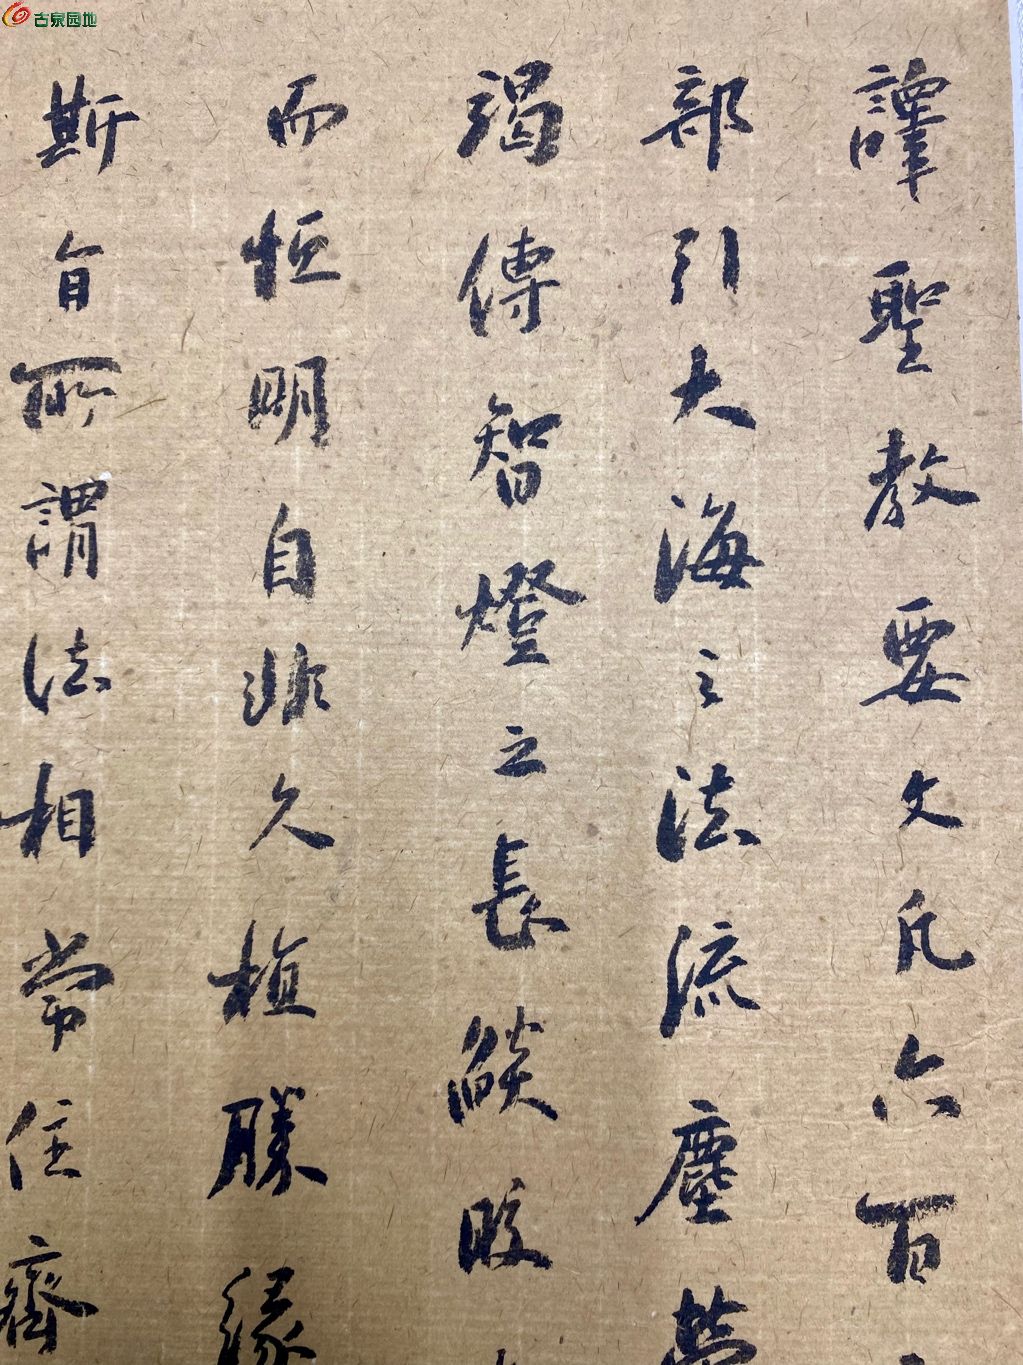 古泉园地
譯聖教要文凡六百
部引大海之法流塵勞
竭傳智燈之長焰皎
而恒明自非久植勝緣
斯旨所謂法相常住齊